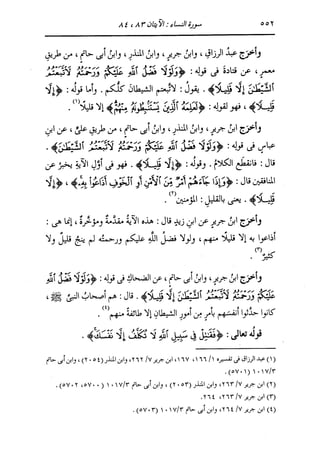 ٥٥٢ سورة النساء : الآيتان ٨٣ ، ٨٤
وأخرَج عبدُ الرزاقِ ، وابنُ جريرٍ ، وابنُ المنذرِ ، وابنُ أبى حاتمٍ ، من طريقِ
معمرٍ ، عن قتادةَ فى قولِه : ﴿وَلَوْلَا فَضْلُ اللَّهِ عَلَيْكُمْ وَرَحْمَتُهُ لَاتَّبَعْتُمُ
الشَّيْطَانَ إِلَّا قَلِيلًا﴾ . يقولُ : لاتَّبعتم الشيطانَ كلُّكم . وأما قولُه : ﴿إِلَّا
قَلِيلًا﴾ ، فهو لقولِه : ﴿لَعَلِمَهُ الَّذِينَ يَسْتَنْبِطُونَهُ مِنْهُمْ﴾ إلا قليلًا(١) .
وأخرَج ابنُ جريرٍ ، وابنُ المنذرِ ، وابنُ أبى حاتمٍ ، من طريقِ علىٍّ ، عن ابنِ
عباسٍ فى قولِه : ﴿وَلَوْلَا فَضْلُ اللَّهِ عَلَيْكُمْ وَرَحْمَتُهُ لَاتَّبَعْتُمُ الشَّيْطَانَ﴾ .
قال : فانقطَع الكلامُ . وقولُه : ﴿إِلَّا قَلِيلًا﴾ . فهو فى أوَّلِ الآيةِ يخبرُ عن
المنافقين قال : ﴿وَإِذَا جَاءَهُمْ أَمْرٌ مِنَ الْأَمْنِ أَوِ الْخَوْفِ أَذَاعُوا بِهِ﴾ ، ﴿إِلَّا
قَلِيلًا﴾ . يعنى بالقليلِ : المؤمنين(٢) .
وأخرَج ابنُ جريرٍ عن ابنِ زيدٍ قال : هذه الآيةُ مقدَّمةٌ ومؤخَّرةٌ ، إنما هى :
أذاعوا به إلا قليلًا منهم ، ولولا فضلُ اللَّهِ عليكم ورحمتُه لم ينجُ قليلٌ ولا
كثيرٌ(٣) .
وأخرَج ابنُ جريرٍ ، وابنُ أبى حاتمٍ ، عن الضحاكِ فى قولِه : ﴿وَلَوْلَا فَضْلُ اللَّهِ
عَلَيْكُمْ وَرَحْمَتُهُ لَاتَّبَعْتُمُ الشَّيْطَانَ إِلَّا قَلِيلًا﴾ . قال : هم أصحابُ النبىِّ ﷺ ،
كانوا حدَّثوا أنفسَهم بأمرٍ من أمورِ الشيطانِ إلا طائفةً منهم(٤) .
قولُه تعالى : ﴿فَقَاتِلْ فِي سَبِيلِ اللَّهِ لَا تُكَلَّفُ إِلَّا نَفْسَكَ﴾ .
(١) عبد الرزاق فى تفسيره ١/ ١٦٦، ١٦٧، وابن جرير ٧/ ٢٦٢، وابن المنذر (٢٠٥٤) ، وابن أبى حاتم
٣/ ١٠١٧ (٥٧٠١) .
(٢) ابن جرير ٧/ ٢٦٣، وابن المنذر (٢٠٥٣) ، وابن أبى حاتم ٣/ ١٠١٧ (٥٧٠٠، ٥٧٠٢) .
(٣) ابن جرير ٧/ ٢٦٣، ٢٦٤.
(٤) ابن جرير ٧/ ٢٦٤، وابن أبى حاتم ٣/ ١٠١٧ (٥٧٠٣) .